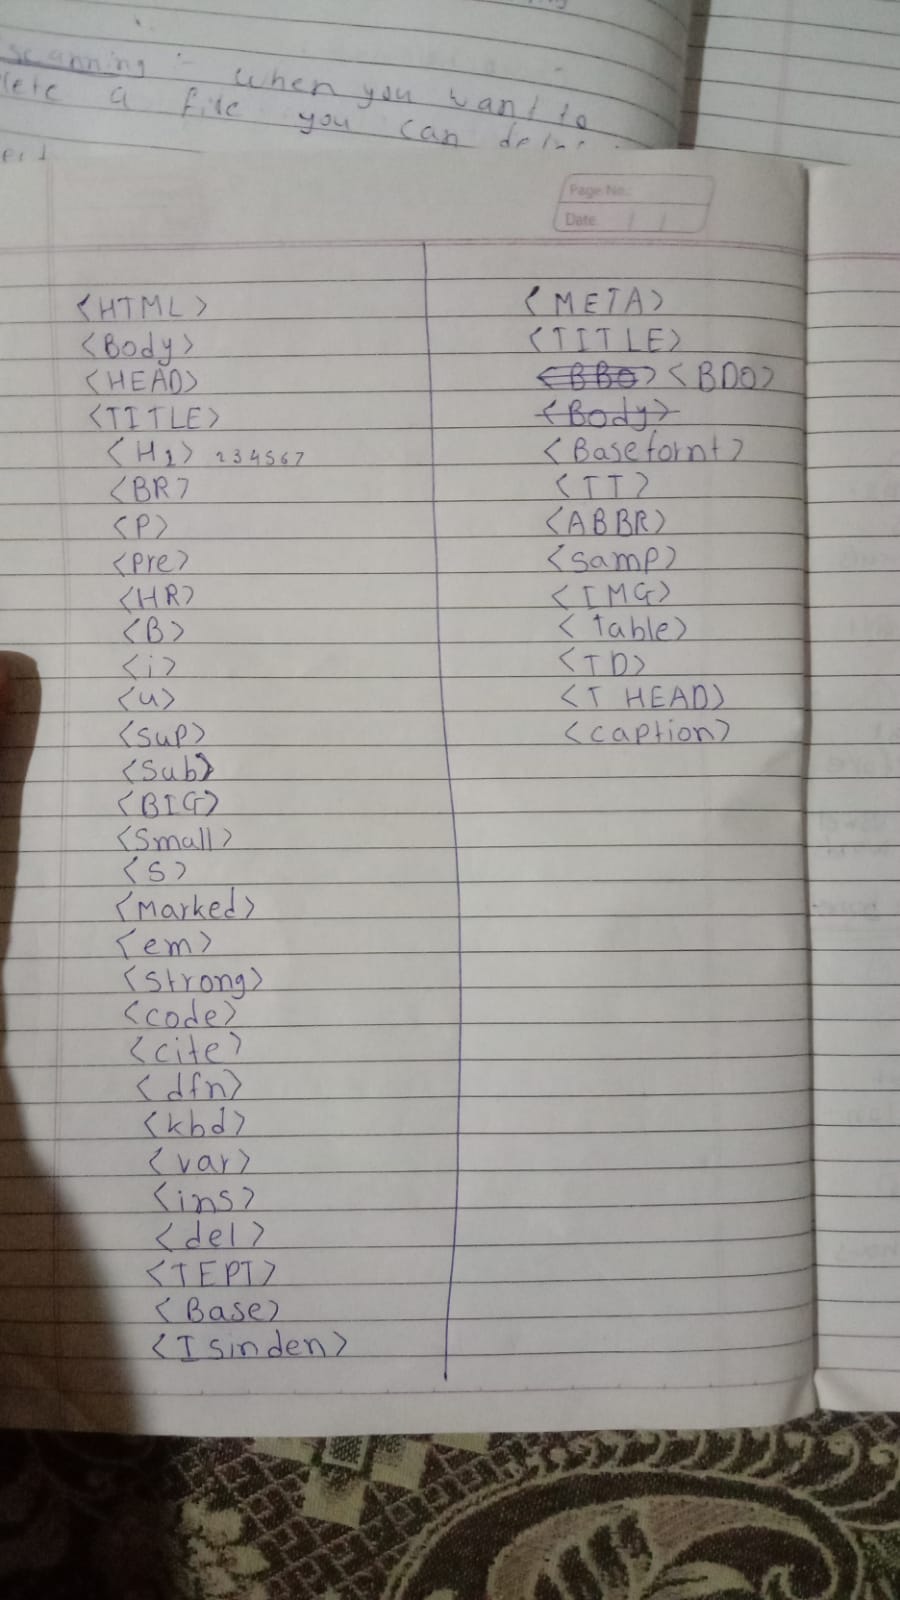 scanning :- when you want to
lete a file you can dele
Page No.:
Date / /
<HTML>
<Body>
<HEAD>
<TITLE>
<H1> 234567
<BR>
<P>
<Pre>
<HR>
<B>
<i>
<u>
<Sup>
<Sub>
<BIG>
<Small>
<S>
<Marked>
<em>
<Strong>
<code>
<cite>
<dfn>
<kbd>
<var>
<ins>
<del>
<TEPT>
<Base>
<Isinden>
<META>
<TITLE>
<BBO> <BDO>
<Body>
<Basefornt>
<TT>
<ABBR>
<samp>
<IMG>
<table>
<TD>
<T HEAD>
<caption>